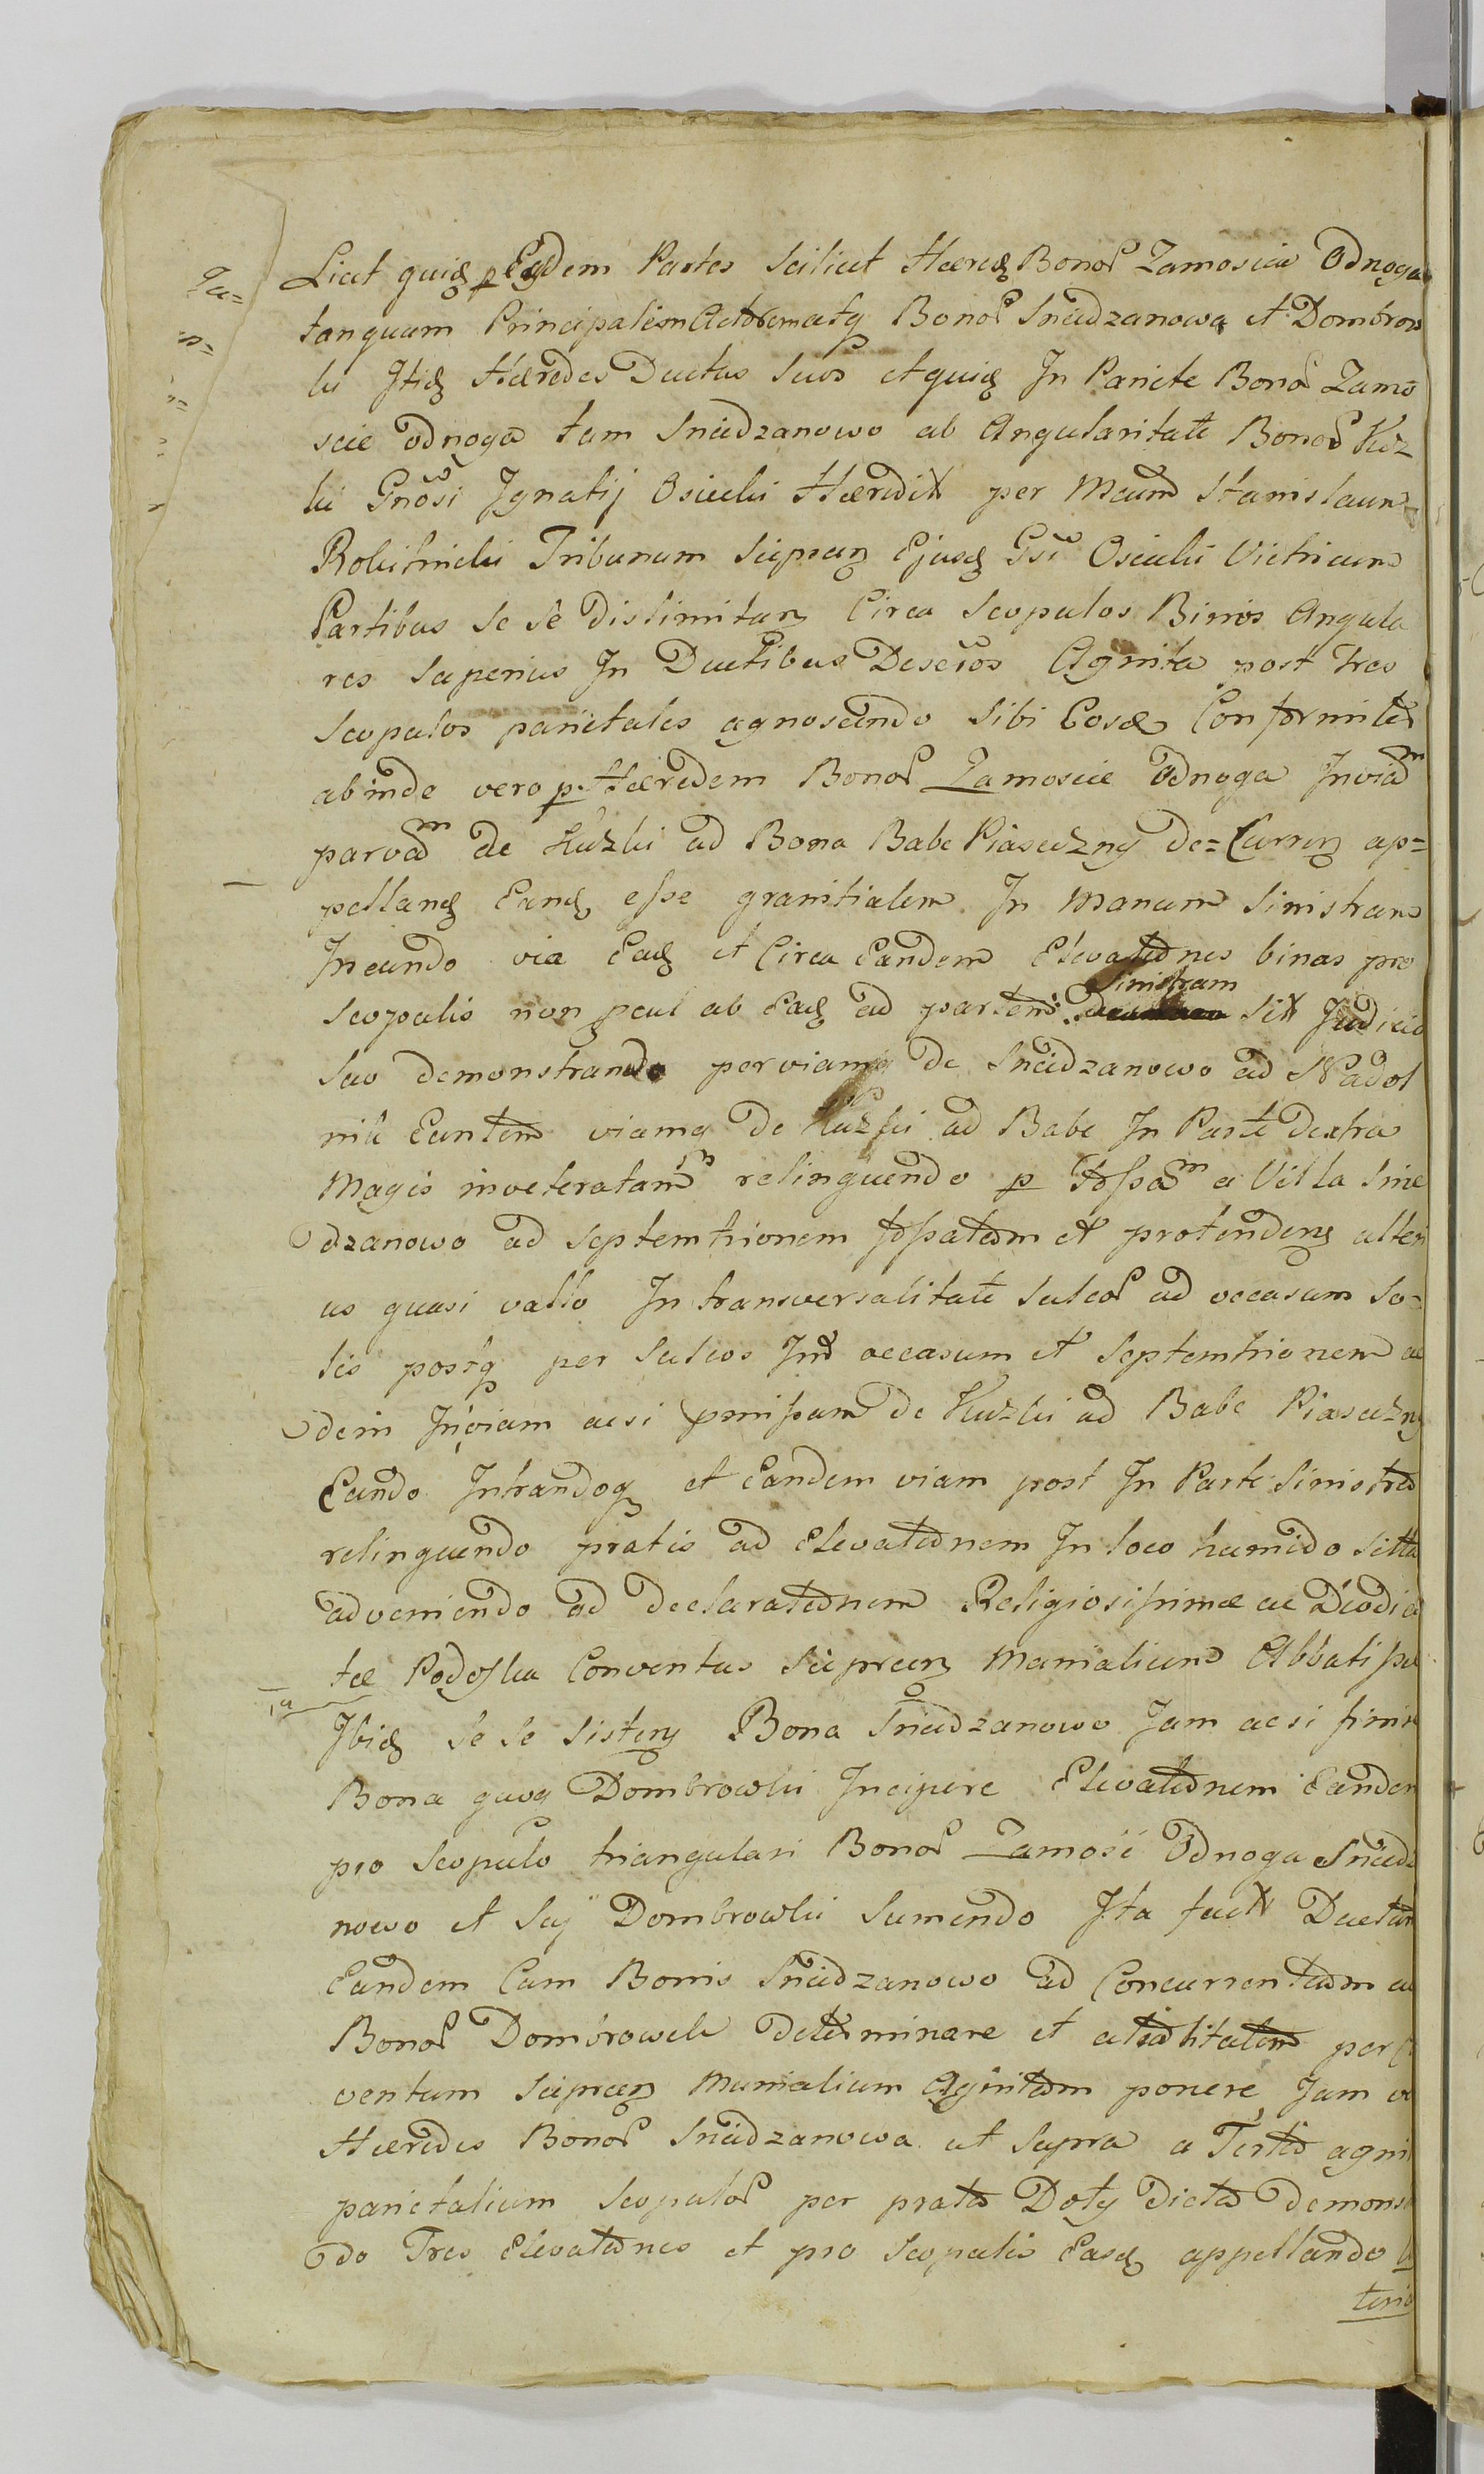 Licet quidẽ p Eosdem Partes Scilicet Hæredẽ Bonoꝝ Zamoscie Odnoga
tanquam Principalem Actorem atq̃ Bonoꝝ Sniadzanowa et Dombrow
ki Itidẽ Hæredes Ductus Suos et quidẽ In Pariete Bonoꝝ Zamo
scie Odnoga tum Sniedzanowo ab Angularitate Bonoꝝ Kuz
ki Gnõsi Ignatij Osiecki Hæredit per Mcum Stanislaum
Robitnicki Tribunum Ejusdẽ Gsi Osiecki Vitricum
Partibus se se Dislimitan Circa Scopulos Binos Angula
res Superius In Ductibus Descõs Agnita post tres
Scopulos parietales agnoscendo Sibi Eosdẽ Conformiter
abinde vero p Hæredem Bonoꝝ Zamoscie Odnoga In viam
parvam de Kuzki ad Bona Babe Piaseczny de=Curren ap=
pellandẽ Eandẽ esse granitialem In Manum Sinistram
Ineundo via Eadẽ et Circa Eandem Elevationes binas pro
Scopulis non pcul ab Eadẽ ad partem Sinistram Sit Judicio
Suo demonstrando per viamq̃ de Sniedzanowo ad Nadol
nik Euntem viamq̃ de Kuzki ad Babe In Parte dextra
Magis inveteratam relinquendo p Fossam a Villa Snie
dzanowo ad Septemtrionem fossatam et protenden alteri
us quasi vallo In transversalitate Sulcoꝝ ad occasum So=
lis postq̃ per Sulcos Int occasum et Septemtrionem ac
dein In viam acsi pmissam de Kuzki ad Babe Piaseczny
Eundo Intrandoq̃ et Eandem viam post In Parte Sinistra
relinquendo pratis ad Elevationem In loco humido Sitta
adveniendo ad declarationem Religiosissimæ ac Deodica
tæ Podoska Conventus Monialium Abbatissa
Ibidẽ se se Sisten Bona Sniedzanowo Jam acsi finire
Bona quoq̃ Dombrowki Incipere Elevationem Eandem
pro Scopulo triangulari Bonoꝝ Zamosc Odnoga Sniedz
nowo et Sij Dombrowki Sumendo Ita fact Ductum
Eundem Cum Bonis Sniedzanowo ad Concurrentiam ac
Bonoꝝ Dombrowek determinare et per
ventum Monialium Agnitam ponere Jam
Hæredes Bonoꝝ Sniedzanowa ut Supra a Tertio agni
parietalium Scopuloꝝ per prata Doły dicta demons
do Tres Elevationes et pro Scopulis Easdẽ appellando
terio